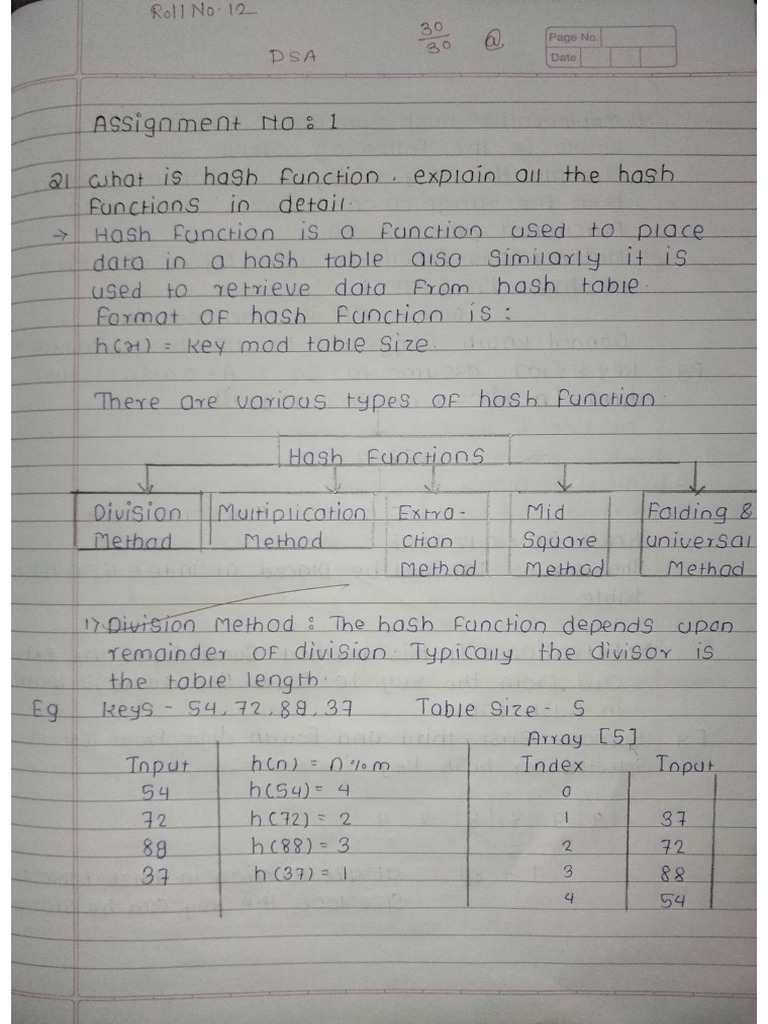 Roll No. 12
30/30
Page No.
DSA
Date
Assignment No : 1
Q1 What is hash function. explain all the hash
functions in detail.
→ Hash function is a function used to place
data in a hash table also similarly it is
used to retrieve data from hash table.
Format of hash function is :
h(x) = key mod table size
There are various types of hash function
Hash Functions
Division Method
Multiplication Method
Extra-ction Method
Mid Square Method
Folding & universal Method
1) Division Method : The hash function depends upon
remainder of division. Typically the divisor is
the table length.
Eg Keys - 54, 72, 89, 37 Table Size - 5
Array [5]
Input h(n) = n % m Index Input
54 h(54) = 4 0
72 h(72) = 2 1 37
89 h(88) = 3 2 72
37 h(37) = 1 3 88
4 54